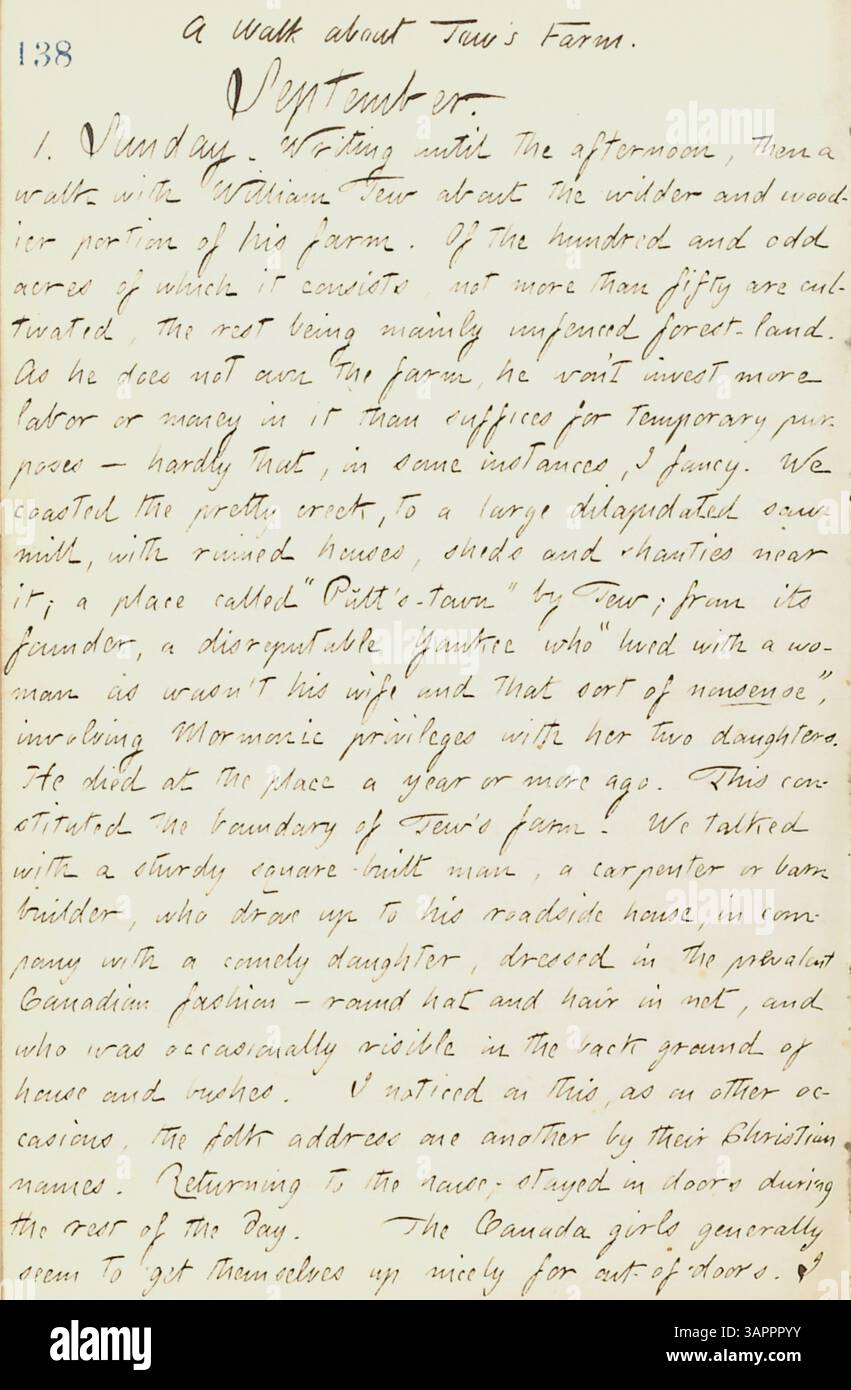 A Walk about Tew's Farm.
138
September.
1. Sunday. Writing until the afternoon, then a
walk with William Tew about the wilder and wood-
ier portion of his farm. Of the hundred and odd
acres of which it consists, not more than fifty are cul-
tivated, the rest being mainly unfenced forest-land.
As he does not own the farm, he won't invest more
labor or money in it than suffices for temporary pur-
poses — hardly that, in some instances, I fancy. We
coasted the pretty creek, to a large dilapidated saw-
mill, with ruined houses, sheds and shanties near
it; a place called "Putt's-town" by Tew; from its
founder, a disreputable Yankee who "lived with a wo-
man as wasn't his wife and that sort of nonsense",
involving Mormonic privileges with her two daughters.
He died at the place a year or more ago. This con-
stituted the boundary of Tew's farm. We talked
with a sturdy square-built man, a carpenter or barn
builder, who drove up to his roadside house, in com-
pany with a comely daughter, dressed in the prevalent
Canadian fashion — round hat and hair in net, and
who was occasionally visible in the back ground of
house and bushes. I noticed on this, as on other oc-
casions, the folk address one another by their Christian
names. Returning to the house, stayed in doors during
the rest of the day. The Canada girls generally
seem to get themselves up nicely for out-of-doors. I
alamy
Image ID: 3APPPYY
www.alamy.com